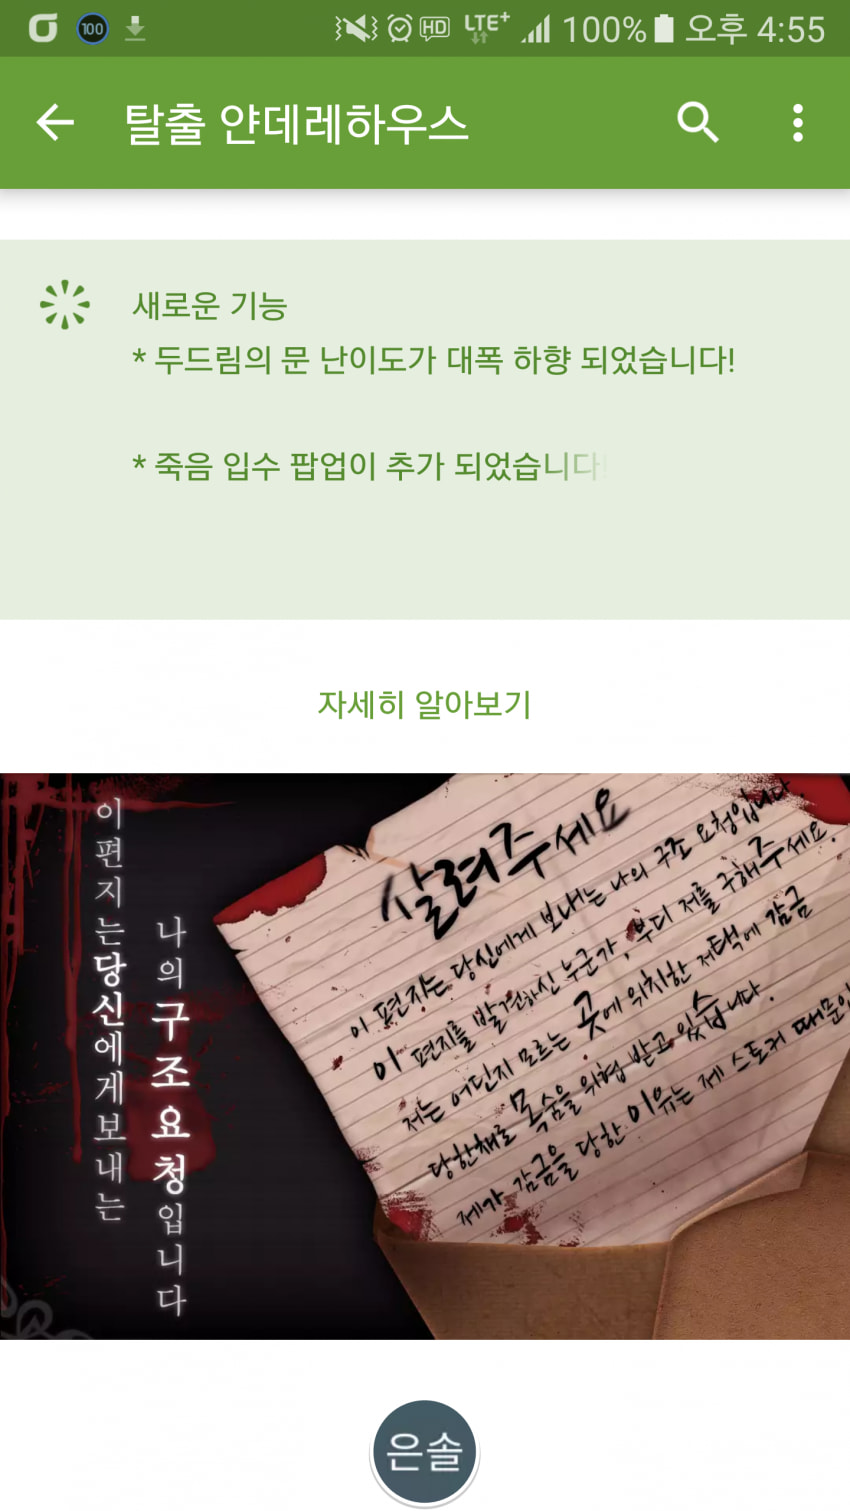 100 HD LTE+ 100% 오후 4:55
탈출 얀데레하우스
새로운 기능
* 두드림의 문 난이도가 대폭 하향 되었습니다!
* 죽음 입수 팝업이 추가 되었습니다!
자세히 알아보기
이편지는당신에게보내는
나의구조요청입니다
살려주세요
이 편지는 당신에게 보내는 나의 구조 요청입니다.
이 편지를 발견하신 누군가, 부디 저를 구해주세요.
저는 어딘지 모르는 곳에 위치한 저택에 감금
당한채로 목숨을 위협 받고 있습니다.
제가 감금을 당한 이유는 제 스토커 때문입
은솔